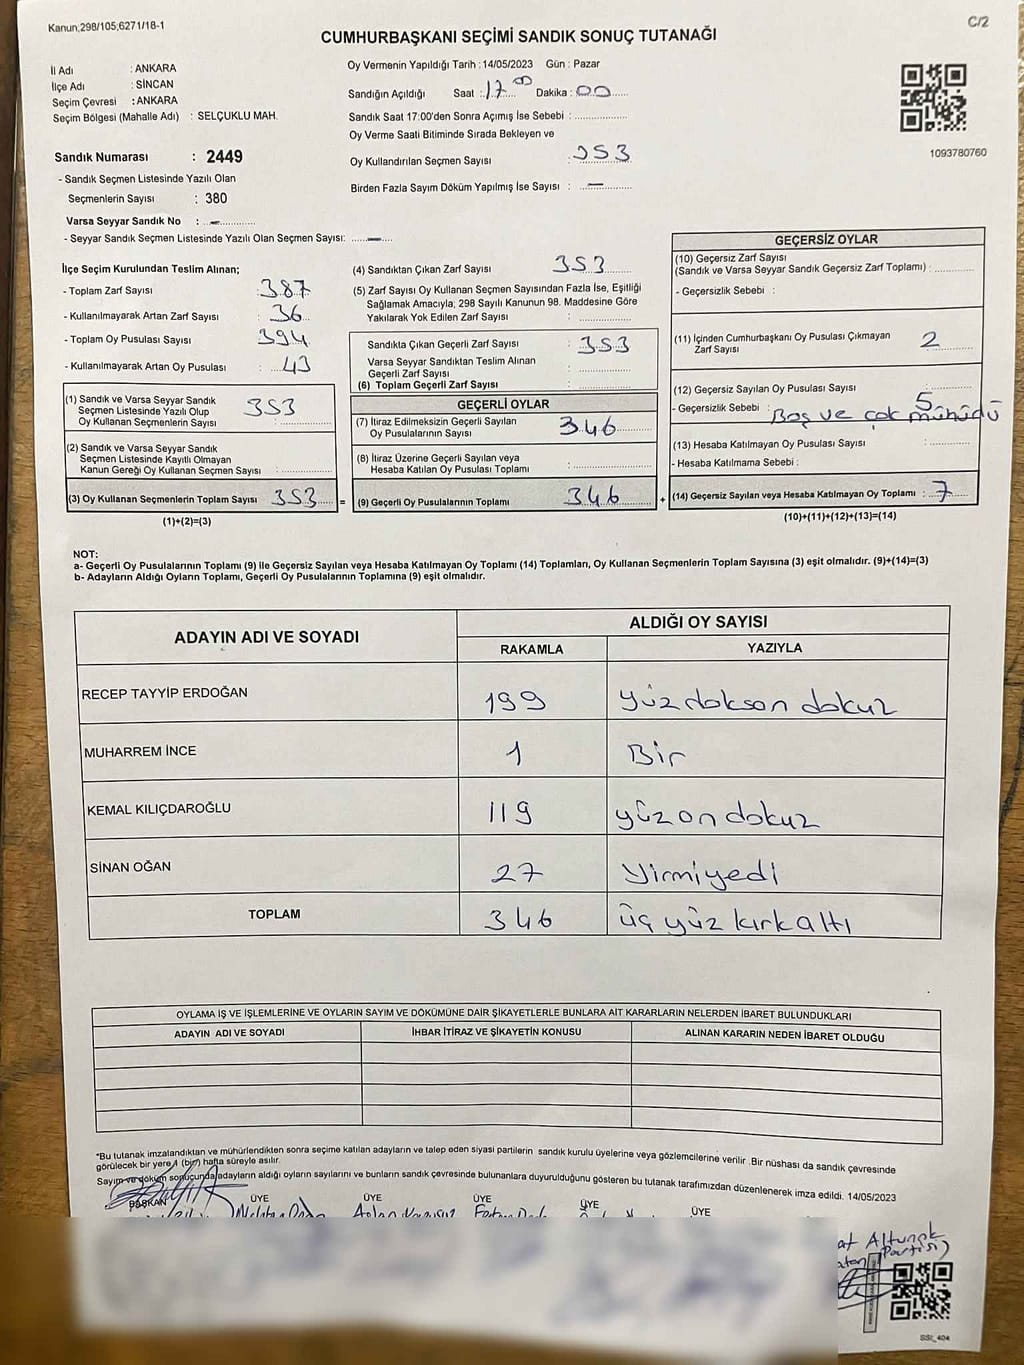 Kanun;298/105;6271/18-1
C/2
CUMHURBAŞKANI SEÇİMİ SANDIK SONUÇ TUTANAĞI
İl Adı : ANKARA
İlçe Adı : SİNCAN
Seçim Çevresi : ANKARA
Seçim Bölgesi (Mahalle Adı) : SELÇUKLU MAH.
Sandık Numarası : 2449
- Sandık Seçmen Listesinde Yazılı Olan
Seçmenlerin Sayısı : 380
Varsa Seyyar Sandık No : –
- Seyyar Sandık Seçmen Listesinde Yazılı Olan Seçmen Sayısı: –
Oy Vermenin Yapıldığı Tarih : 14/05/2023 Gün : Pazar
Sandığın Açıldığı Saat : 17 00 Dakika : 00
Sandık Saat 17:00'den Sonra Açımış İse Sebebi :
Oy Verme Saati Bitiminde Sırada Bekleyen ve
Oy Kullandırılan Seçmen Sayısı : 353
Birden Fazla Sayım Döküm Yapılmış İse Sayısı : –
1093780760
İlçe Seçim Kurulundan Teslim Alınan;
- Toplam Zarf Sayısı : 387
- Kullanılmayarak Artan Zarf Sayısı : 36
- Toplam Oy Pusulası Sayısı : 394
- Kullanılmayarak Artan Oy Pusulası : 43
(1) Sandık ve Varsa Seyyar Sandık
Seçmen Listesinde Yazılı Olup
Oy Kullanan Seçmenlerin Sayısı : 353
(2) Sandık ve Varsa Seyyar Sandık
Seçmen Listesinde Kayıtlı Olmayan
Kanun Gereği Oy Kullanan Seçmen Sayısı :
(3) Oy Kullanan Seçmenlerin Toplam Sayısı : 353 =
(1)+(2)=(3)
(4) Sandıktan Çıkan Zarf Sayısı : 353
(5) Zarf Sayısı Oy Kullanan Seçmen Sayısından Fazla İse, Eşitliği
Sağlamak Amacıyla; 298 Sayılı Kanunun 98. Maddesine Göre
Yakılarak Yok Edilen Zarf Sayısı :
Sandıkta Çıkan Geçerli Zarf Sayısı : 353
Varsa Seyyar Sandıktan Teslim Alınan
Geçerli Zarf Sayısı :
(6) Toplam Geçerli Zarf Sayısı :
GEÇERLİ OYLAR
(7) İtiraz Edilmeksizin Geçerli Sayılan
Oy Pusulalarının Sayısı : 346
(8) İtiraz Üzerine Geçerli Sayılan veya
Hesaba Katılan Oy Pusulası Toplamı :
(9) Geçerli Oy Pusulalarının Toplamı : 346 +
GEÇERSİZ OYLAR
(10) Geçersiz Zarf Sayısı
(Sandık ve Varsa Seyyar Sandık Geçersiz Zarf Toplamı) :
- Geçersizlik Sebebi :
(11) İçinden Cumhurbaşkanı Oy Pusulası Çıkmayan
Zarf Sayısı : 2
(12) Geçersiz Sayılan Oy Pusulası Sayısı : 5
- Geçersizlik Sebebi : Boş ve çok mühüdü
(13) Hesaba Katılmayan Oy Pusulası Sayısı :
- Hesaba Katılmama Sebebi :
(14) Geçersiz Sayılan veya Hesaba Katılmayan Oy Toplamı : 7
(10)+(11)+(12)+(13)=(14)
NOT:
a- Geçerli Oy Pusulalarının Toplamı (9) ile Geçersiz Sayılan veya Hesaba Katılmayan Oy Toplamı (14) Toplamları, Oy Kullanan Seçmenlerin Toplam Sayısına (3) eşit olmalıdır. (9)+(14)=(3)
b- Adayların Aldığı Oyların Toplamı, Geçerli Oy Pusulalarının Toplamına (9) eşit olmalıdır.
ADAYIN ADI VE SOYADI
ALDIĞI OY SAYISI
RAKAMLA YAZIYLA
RECEP TAYYİP ERDOĞAN 199 yüzdoksan dokuz
MUHARREM İNCE 1 Bir
KEMAL KILIÇDAROĞLU 119 yüzon dokuz
SİNAN OĞAN 27 Yirmiyedi
TOPLAM 346 üç yüz kırkaltı
OYLAMA İŞ VE İŞLEMLERİNE VE OYLARIN SAYIM VE DÖKÜMÜNE DAİR ŞİKAYETLERLE BUNLARA AİT KARARLARIN NELERDEN İBARET BULUNDUKLARI
ADAYIN ADI VE SOYADI İHBAR İTİRAZ VE ŞİKAYETİN KONUSU ALINAN KARARIN NEDEN İBARET OLDUĞU
*Bu tutanak imzalandıktan ve mühürlendikten sonra seçime katılan adayların ve talep eden siyasi partilerin sandık kurulu üyelerine veya gözlemcilerine verilir .Bir nüshası da sandık çevresinde
görülecek bir yere 1 (bir) hafta süreyle asılır.
Sayım ve döküm sonucunda adayların aldığı oyların sayılarını ve bunların sandık çevresinde bulunanlara duyurulduğunu gösteren bu tutanak tarafımızdan düzenlenerek imza edildi. 14/05/2023
BAŞKAN ÜYE ÜYE ÜYE ÜYE ÜYE
at Altunok
Partisi)
SSI_404